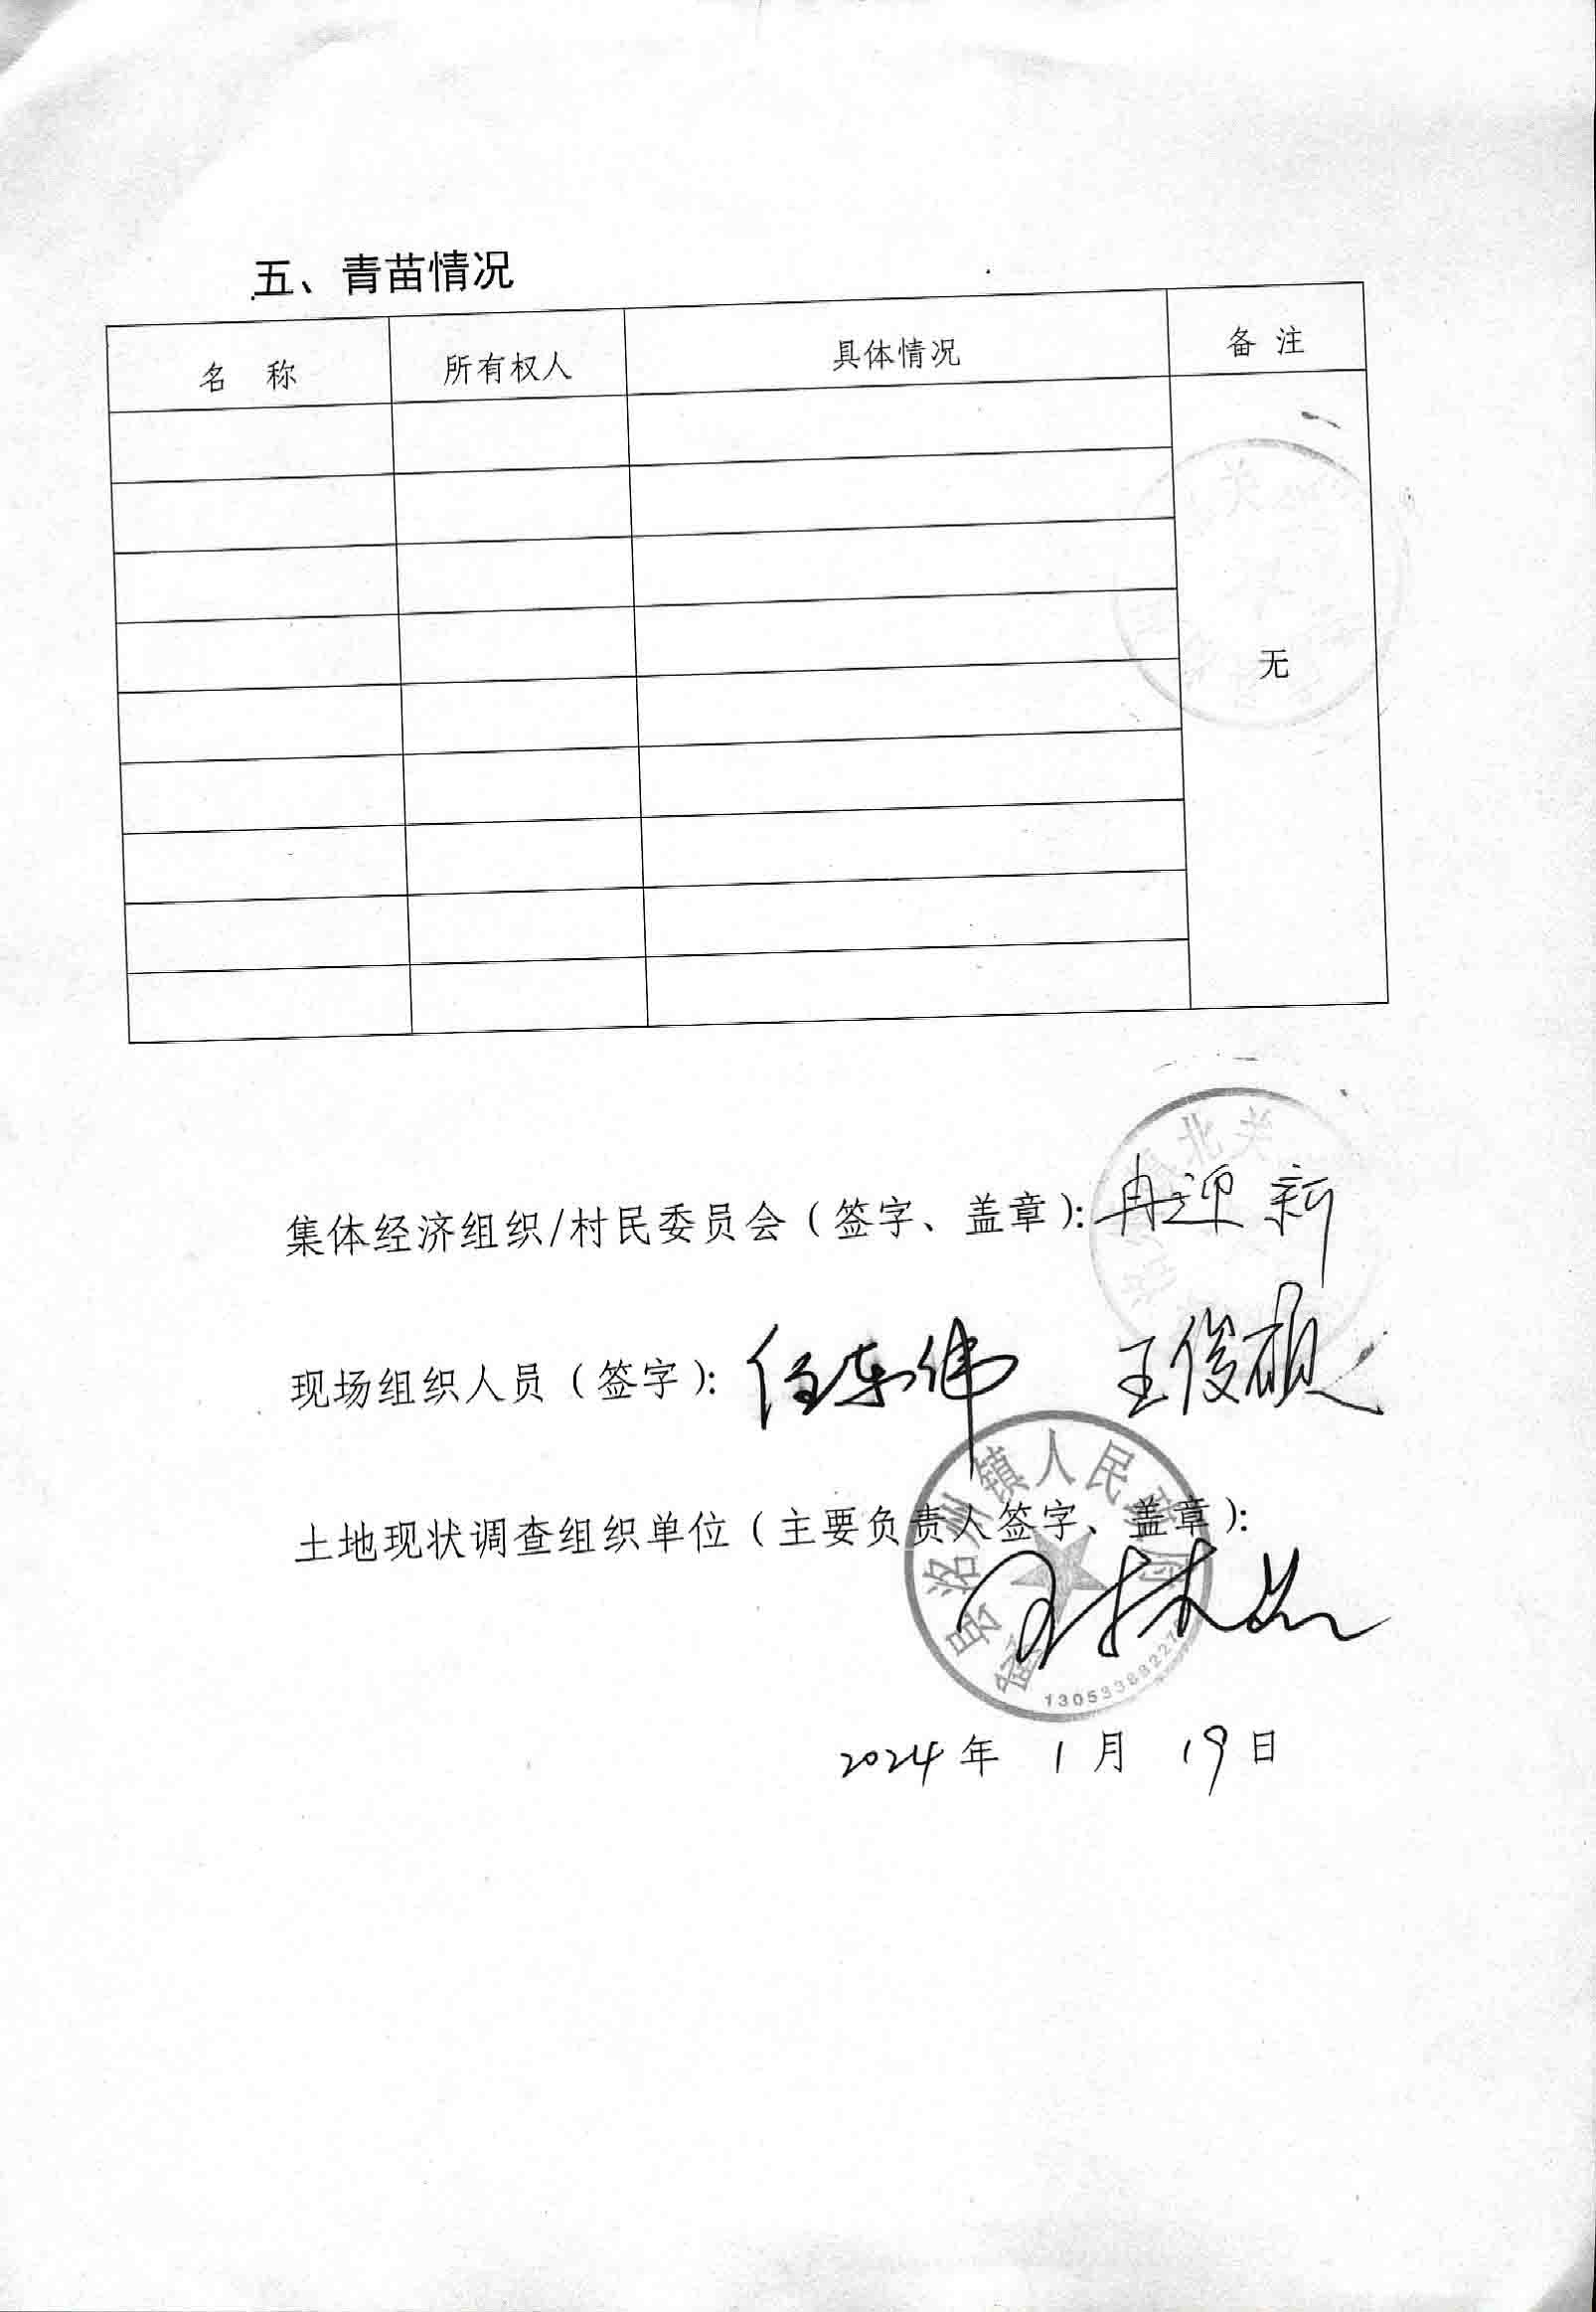 五、青苗情况
名 称 所有权人 具体情况 备 注
关
无
北关
集体经济组织/村民委员会（签字、盖章）：冉迎新
现场组织人员（签字）：任东伟 王俊硕
土地现状调查组织单位（主要负责人签字、盖章）：
县洺州镇人民政府
2024年 1月 19日